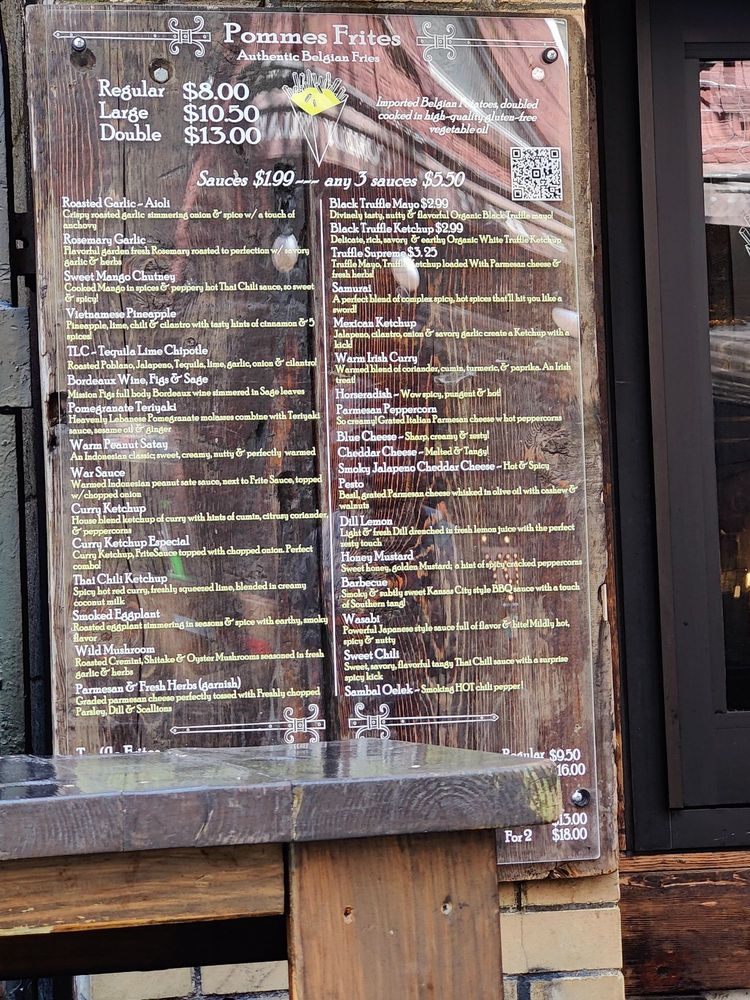 Pommes Frites
Authentic Belgian Fries
Regular $8.00
Large $10.50
Double $13.00
Imported Belgian Potatoes, doubled
cooked in high-quality gluten-free
vegetable oil
Sauces $1.99 --- any 3 sauces $5.50
Roasted Garlic - Aioli
Crispy roasted garlic simmering onion & spice w/ a touch of
anchovy
Rosemary Garlic
Flavorful garden fresh Rosemary roasted to perfection w/ savory
garlic & herbs
Sweet Mango Chutney
Cooked Mango in spices & peppery hot Thai Chili sauce, so sweet
& spicy!
Vietnamese Pineapple
Pineapple, lime, chili & cilantro with tasty hints of cinnamon & 5
spices!
TLC - Tequila Lime Chipotle
Roasted Poblano, Jalapeno, Tequila, lime, garlic, onion & cilantro!
Bordeaux Wine, Figs & Sage
Mission Figs full body Bordeaux wine simmered in Sage leaves
Pomegranate Teriyaki
Heavenly Lebanese Pomegranate molasses combine with Teriyaki
sauce, sesame oil & ginger
Warm Peanut Satay
An Indonesian classic; sweet, creamy, nutty & perfectly warmed
War Sauce
Warmed Indonesian peanut sate sauce, next to Frite Sauce, topped
w/chopped onion
Curry Ketchup
House blend ketchup of curry with hints of cumin, citrusy coriander
& peppercorns
Curry Ketchup Especial
Curry Ketchup, FriteSauce topped with chopped onion. Perfect
combo!
Thai Chili Ketchup
Spicy hot red curry, freshly squeezed lime, blended in creamy
coconut milk
Smoked Eggplant
Roasted eggplant simmering in seasons & spice with earthy, smoky
flavor
Wild Mushroom
Roasted Cremini, Shitake & Oyster Mushrooms seasoned in fresh
garlic & herbs
Parmesan & Fresh Herbs (garnish)
Graded parmesan cheese perfectly tossed with Freshly chopped
Parsley, Dill & Scallions
Black Truffle Mayo $2.99
Divinely tasty, nutty & flavorful Organic Black Truffle mayo!
Black Truffle Ketchup $2.99
Delicate, rich, savory & earthy Organic White Truffle Ketchup
Truffle Supreme $3.25
Truffle Mayo, Truffle Ketchup loaded With Parmesan cheese &
fresh herbs!
Samurai
A perfect blend of complex spicy, hot spices that'll hit you like a
sword!
Mexican Ketchup
Jalapeno, cilantro, onion & savory garlic create a Ketchup with a
kick!
Warm Irish Curry
Warmed blend of coriander, cumin, turmeric, & paprika. An Irish
treat!
Horseradish - Wow spicy, pungent & hot!
Parmesan Peppercorn
So creamy! Grated Italian Parmesan cheese w hot peppercorns
Blue Cheese - Sharp, creamy & zesty!
Cheddar Cheese - Melted & Tangy!
Smoky Jalapeno Cheddar Cheese - Hot & Spicy
Pesto
Basil, grated Parmesan cheese whisked in olive oil with cashew &
walnuts
Dill Lemon
Light & fresh Dill drenched in fresh lemon juice with the perfect
zesty touch
Honey Mustard
Sweet honey, golden Mustard; a hint of spicy cracked peppercorns
Barbecue
Smoky & subtly sweet Kansas City style BBQ sauce with a touch
of Southern tang!
Wasabi
Powerful Japanese style sauce full of flavor & bite! Mildly hot,
spicy & nutty
Sweet Chili
Sweet, savory, flavorful tangy Thai Chili sauce with a surprise
spicy kick
Sambal Oelek - Smoking HOT chili pepper!
Regular $9.50
16.00
13.00
For 2 $18.00